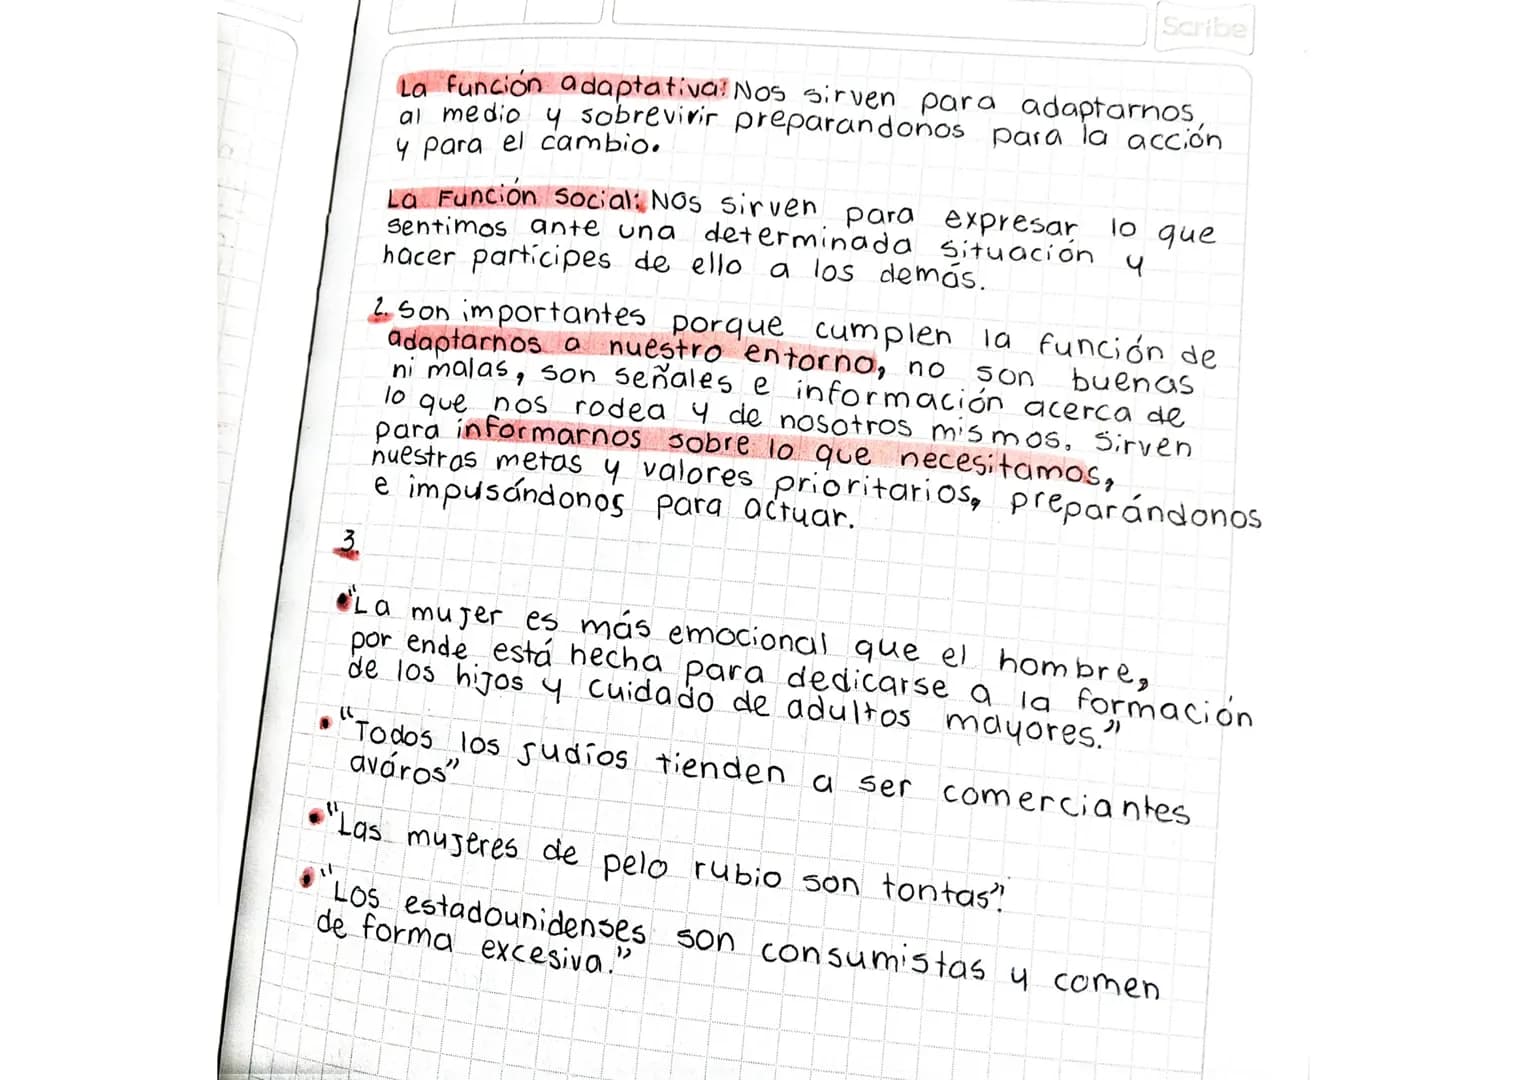 Scribe
La función adaptativa: Nos sirven para adaptarnos
al medio y sobrevivir preparandonos para la acción
y para el cambio.
La Función Social: Nos sirven para expresar lo que
sentimos ante una determinada situación y
hacer partícipes de ello a los demás.
2. Son importantes porque cumplen la función de
adaptarnos a nuestro entorno, no son buenas
ni malas, son señales e información acerca de
lo que nos rodea y de nosotros mismos, sirven
para informarnos sobre lo que necesitamos,
nuestras metas y valores prioritarios, preparándonos
e impusándonos para actuar.
3.
• "La mujer es más emocional que el hombre,
por ende está hecha para dedicarse a la formación
de los hijos y cuidado de adultos mayores."
• "Todos los judíos tienden a ser comerciantes
aváros"
• "Las mujeres de pelo rubio son tontas".
• "Los estadounidenses son consumistas y comen
de forma excesiva."